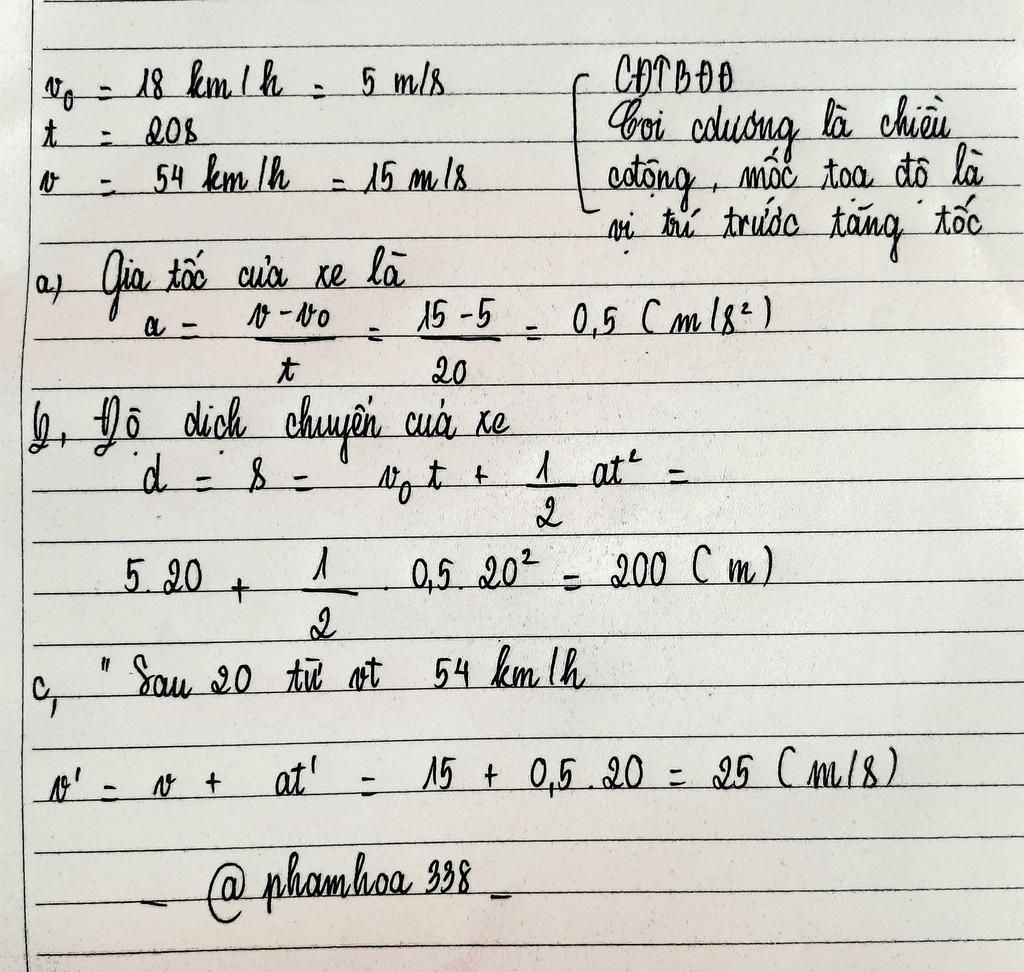 v₀ = 18 km/h = 5 m/s
t = 20s
v = 54 km/h = 15 m/s
CĐTBĐĐ
Coi cdương là chiều
cđộng, mốc toạ độ là
vị trí trước tăng tốc
a, Gia tốc của xe là
a = (v - v₀)/t = (15 - 5)/20 = 0,5 (m/s²)
b, Độ dịch chuyển của xe
d = s = v₀t + 1/2 at² =
5.20 + 1/2 . 0,5.20² = 200 (m)
c, " Sau 20 từ vt 54 km/h
v' = v + at' = 15 + 0,5.20 = 25 (m/s)
- @phamhoa338 -